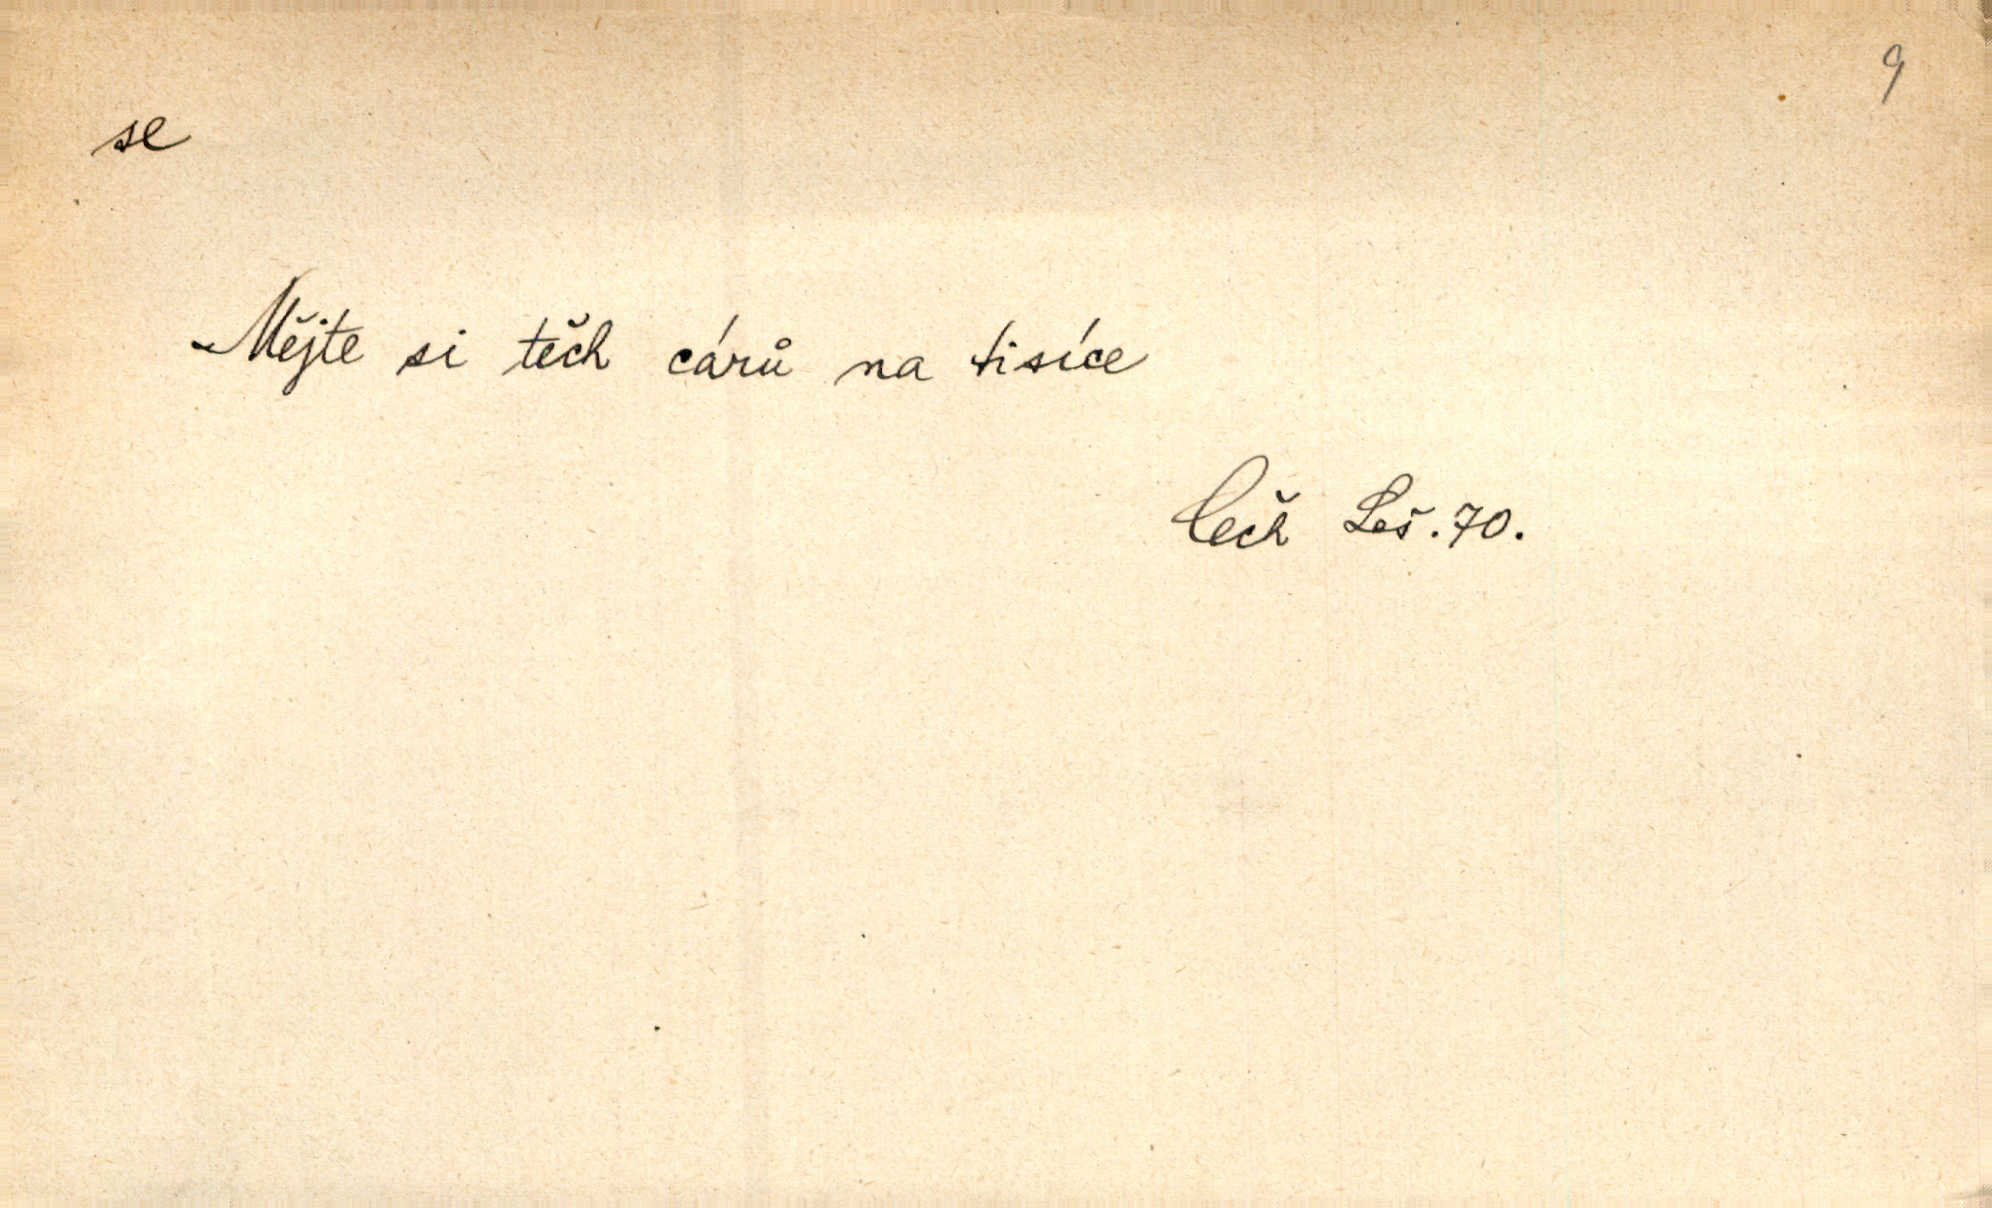 9
se
Mějte si těch cárů na tisíce
Čech Leš. 70.